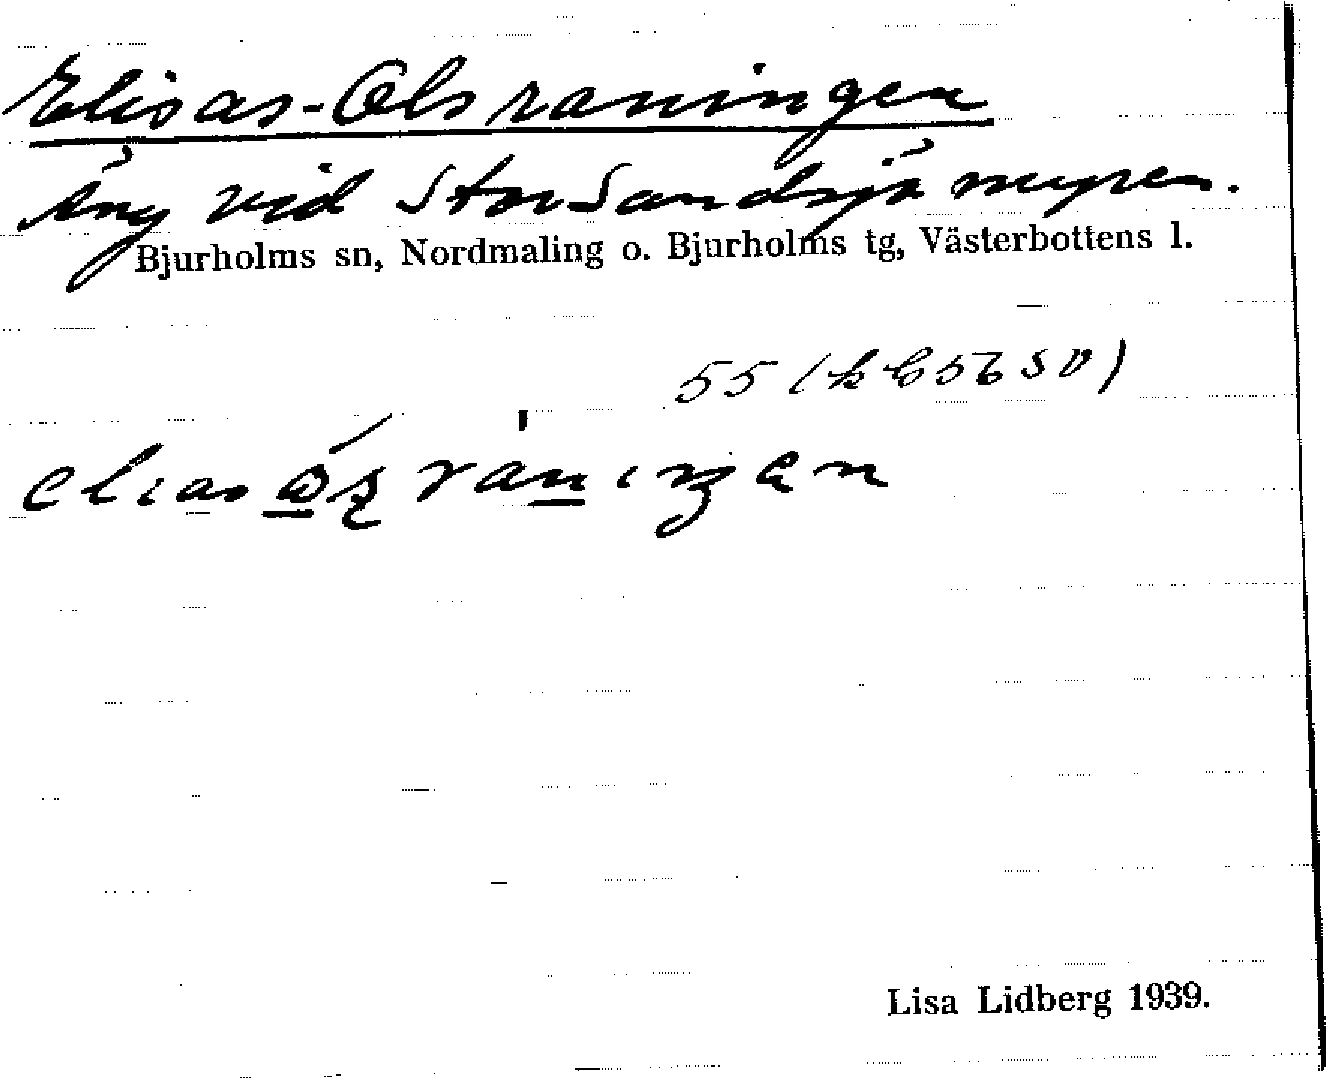 Elisas-Olsraningen
Äng vid Storsandsjömyren.
Bjurholms sn, Nordmaling o. Bjurholms tg, Västerbottens l.
55
Lisa Lidberg 1939.